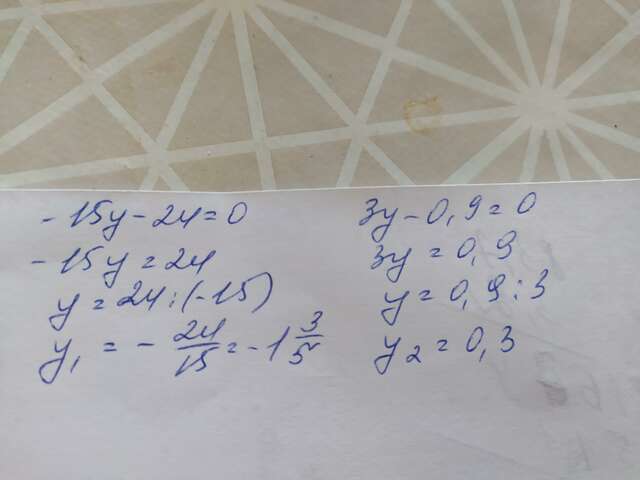 -15y-24=0
-15y=24
y=24:(-15)
y₁=-24/15=-1 3/5
3y-0,9=0
3y=0,9
y=0,9:3
y₂=0,3